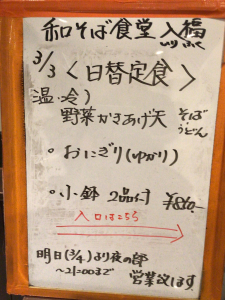 和そば食堂 入福
3/3 <日替定食>
温・冷)
野菜かきあげ天 そば
うどん
・おにぎり(ゆかり)
・小鉢 2品付 ¥860-
入口はこちら
明日(3/4)より夜の部
~21:00まで 営業致します